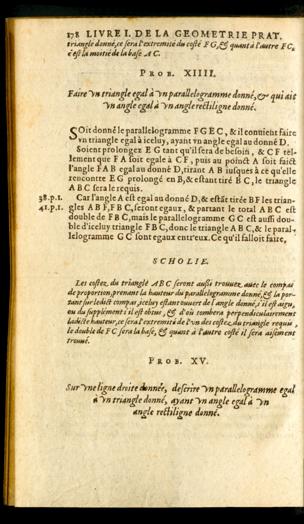 178 LIVRE I. DE LA GEOMETRIE PRAT.
triangle donné, ce sera l'extremité du costé FG, & quant à l'autre FC,
c'est la moitié de la base AC.
PROB. XIIII.
Faire vn triangle egal à vn parallelogramme donné, & qui ait
vn angle egal à vn angle rectiligne donné.
SOit donné le parallelogramme FGEC, & il contient faire
vn triangle egal à iceluy, ayant vn angle egal au donné D.
Soient prolongez EG tant qu'il sera de besoin, & CF tel-
lement que FA soit egale à CF, puis au poinct A soit faict
l'angle FAB egal au donné D, tirant AB iusques à ce qu'elle
rencontre EG prolongé en B, & estant tiré BC, le triangle
ABC sera le requis.
38.p.1. Car l'angle A est egal au donné D, & estãs tirée BF les trian-
41.p.1. gles ABF, FBC, seront egaux, & partant le total ABC est
double de FBC, mais le parallelogramme GC est aussi dou-
ble d'iceluy triangle FBC, donc le triangle ABC, & le paral-
lelogramme GC sont egaux entr'eux. Ce qu'il falloit faire,
SCHOLIE.
Les costez du triangle ABC seront aussi trouuez auec le compas
de proportion, prenant la hauteur du parallelogramme donné, & la por-
tant sur ledict compas, iceluy estant ouuert de l'angle donné, s'il est aigu,
ou du supplement s'il est obtus, & d'où tombera perpendiculairement
ladicte hauteur, ce sera l'extremité de l'vn des costez du triangle requis,
le double de FC sera la base, & quant à l'autre costé il sera aisément
trouué.
PROB. XV.
Sur vne ligne droite donnée, descrire vn parallelogramme egal
à vn triangle donné, ayant vn angle egal à vn
angle rectiligne donné.